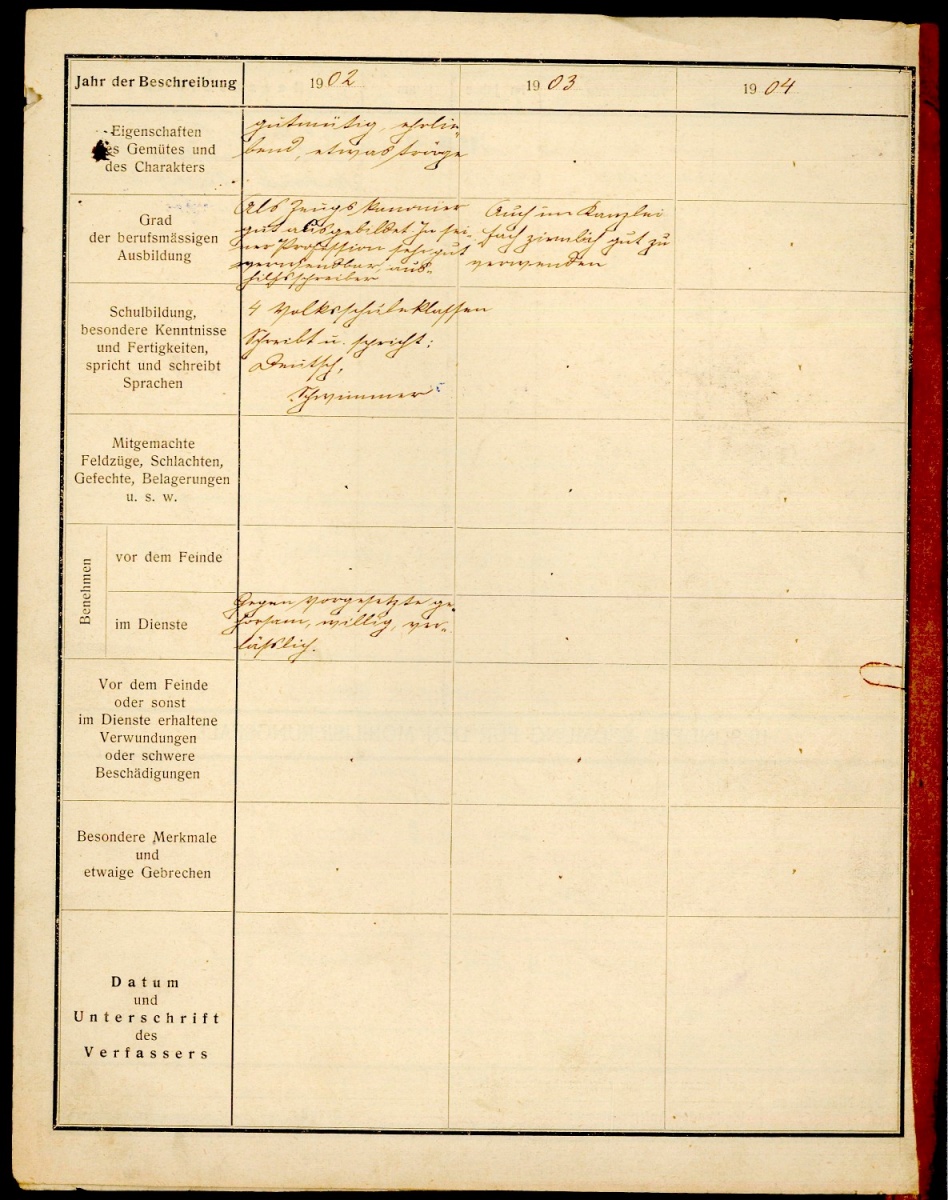 Jahr der Beschreibung
1902
1903
1904
Eigenschaften
des Gemütes und
des Charakters
gutmütig, ehrlie-
bend, etwas träge
Grad
der berufsmässigen
Ausbildung
Als Zeugskanonier
gut ausgebildet In sei-
ner Profession sehr gut
verwendbar, aus-
hilfsschreiber
Auch im Kanzlei
fach ziemlich gut zu
verwenden
Schulbildung,
besondere Kenntnisse
und Fertigkeiten,
spricht und schreibt
Sprachen
4 Volksschuleklassen
Schreibt u. spricht:
Deutsch,
Schwimmer
Mitgemachte
Feldzüge, Schlachten,
Gefechte, Belagerungen
u. s. w.
Benehmen
vor dem Feinde
im Dienste
Gegen Vorgesetzte ge-
horsam, willig, ver-
läßlich.
Vor dem Feinde
oder sonst
im Dienste erhaltene
Verwundungen
oder schwere
Beschädigungen
Besondere Merkmale
und
etwaige Gebrechen
Datum
und
Unterschrift
des
Verfassers